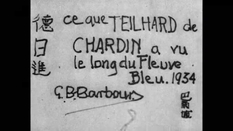 德日進
ce que TEILHARD de
CHARDIN a vu
le long du Fleuve
Bleu. 1934
G.B. Barbour